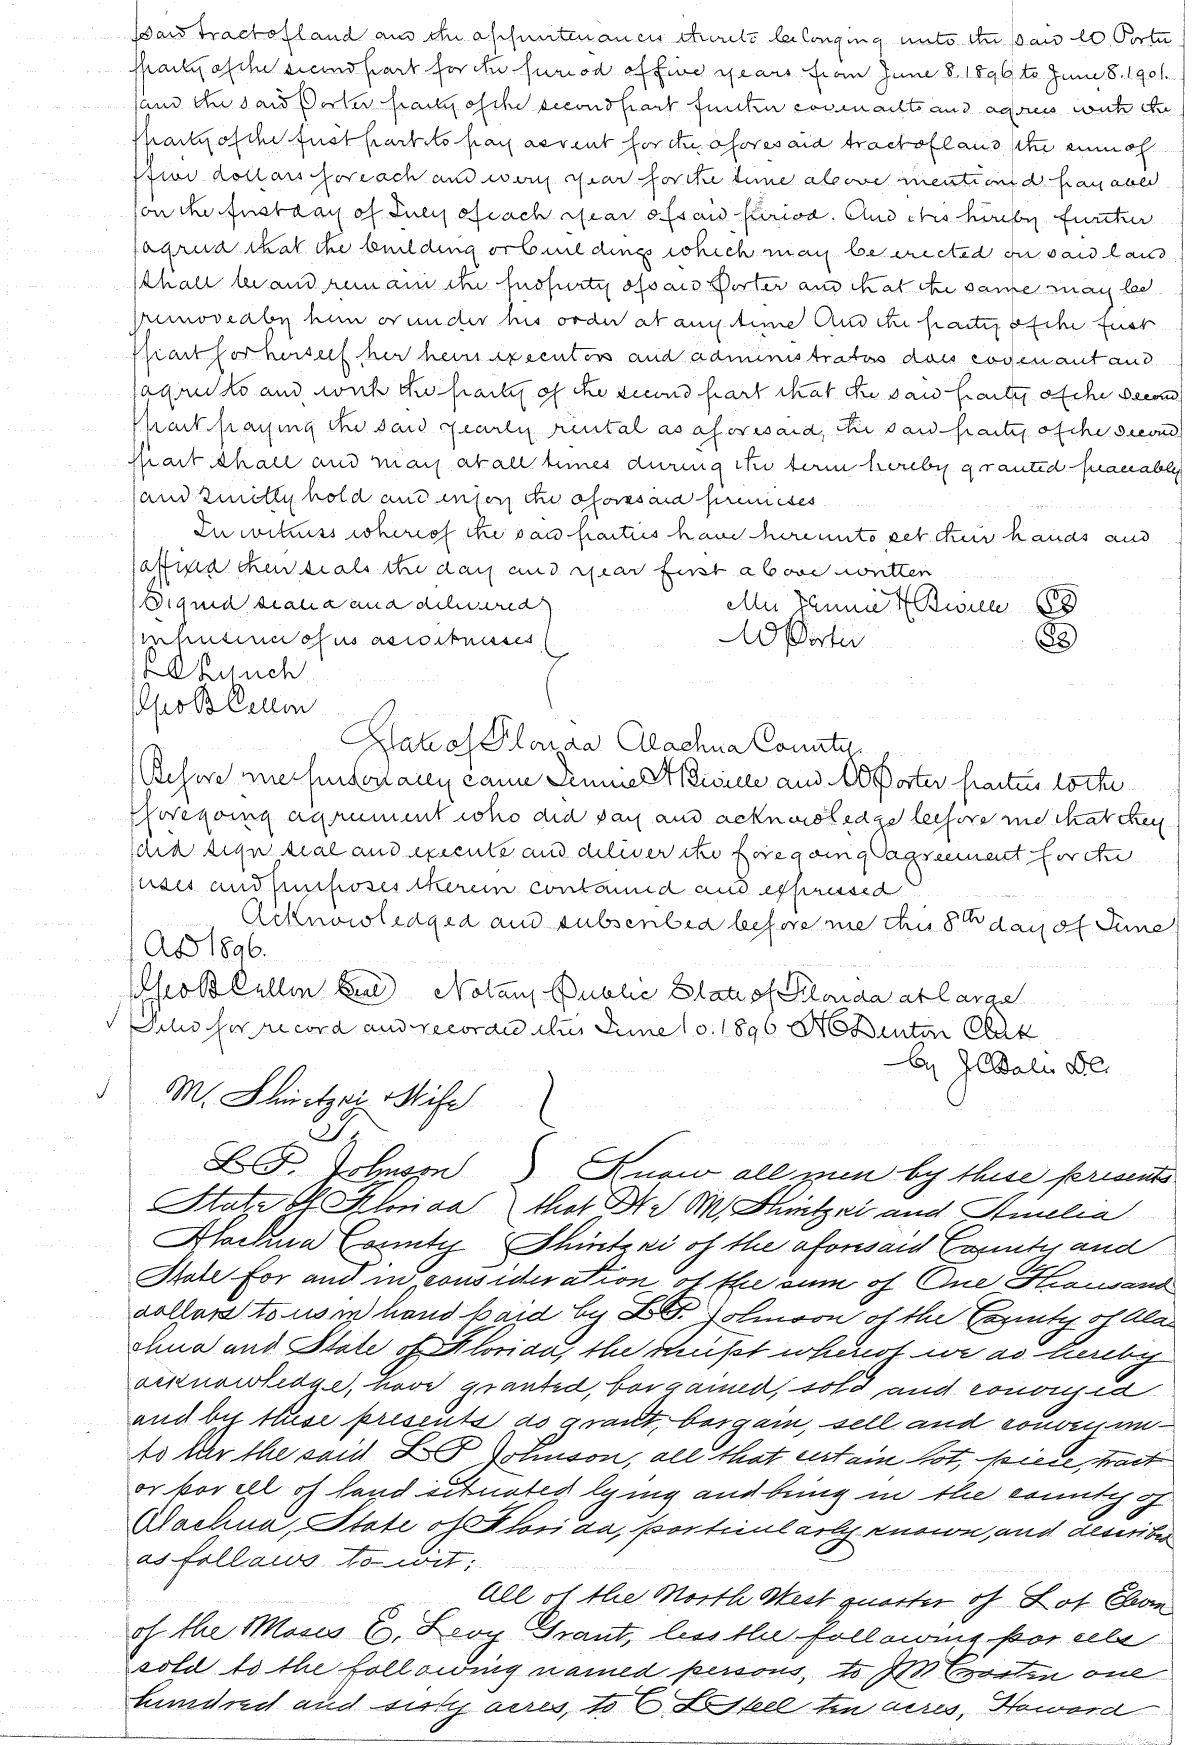 said tract of land and the appurtenances thereto belonging unto the said W Porter
party of the second part for the period of five years from June 8. 1896 to June 8. 1901.
and the said Porter party of the second part further covenants and agrees with the
party of the first part to pay as rent for the aforesaid tract of land the sum of
five dollars for each and every year for the time above mentioned payable
on the first day of July of each year of said period. And it is hereby further
agreed that the building or buildings which may be erected on said land
shall be and remain the property of said Porter and that the same may be
removed by him or under his order at any time And the party of the first
part for herself her heirs executors and administrators does covenant and
agree to and with the party of the second part that the said party of the second
part paying the said yearly rental as aforesaid, the said party of the second
part shall and may at all times during the term hereby granted peaceably
and quietly hold and enjoy the aforesaid premises
In witness whereof the said parties have hereunto set their hands and
affixed their seals the day and year first above written
Signed sealed and delivered Mrs Jennie H Biville
in presence of us as witnesses W Porter
L C Lynch
Geo B Cellon
State of Florida Alachua County
Before me personally came Jennie H Biville and W Porter parties to the
foregoing agreement who did say and acknowledge before me that they
did sign seal and execute and deliver the foregoing agreement for the
uses and purposes therein contained and expressed
Acknowledged and subscribed before me this 8th day of June
AD 1896.
Geo B Cellon Seal Notary Public State of Florida at large
Filed for record and recorded this June 10. 1896 H C Denton Clerk
by D.C.
M. Shiretzki & Wife
To
L P. Johnson Know all men by these presents
State of Florida that We M, Shiretzki and Amelia
Alachua County Shiretzki of the aforesaid County and
State for and in consideration of the sum of One Thousand
dollars to us in hand paid by L P. Johnson of the County of Ala-
chua and State of Florida, the receipt whereof we do hereby
acknowledge, have granted, bargained, sold and conveyed
and by these presents do grant, bargain, sell and convey un-
to her the said L P Johnson, all that certain lot, piece, tract
or parcell of land situated lying and being in the county of
Alachua, State of Florida, particularly known, and described
as follows to wit;
All of the North West quarter of Lot Eleven
of the Moses E. Levy Grant, less the following parcels
sold to the following named persons, to J M Crosten one
hundred and sixty acres, to C L Steel ten acres, Howard